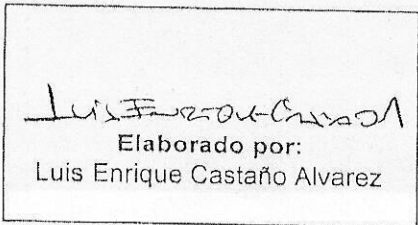 Luis Enrique Castaño A
Elaborado por:
Luis Enrique Castaño Alvarez